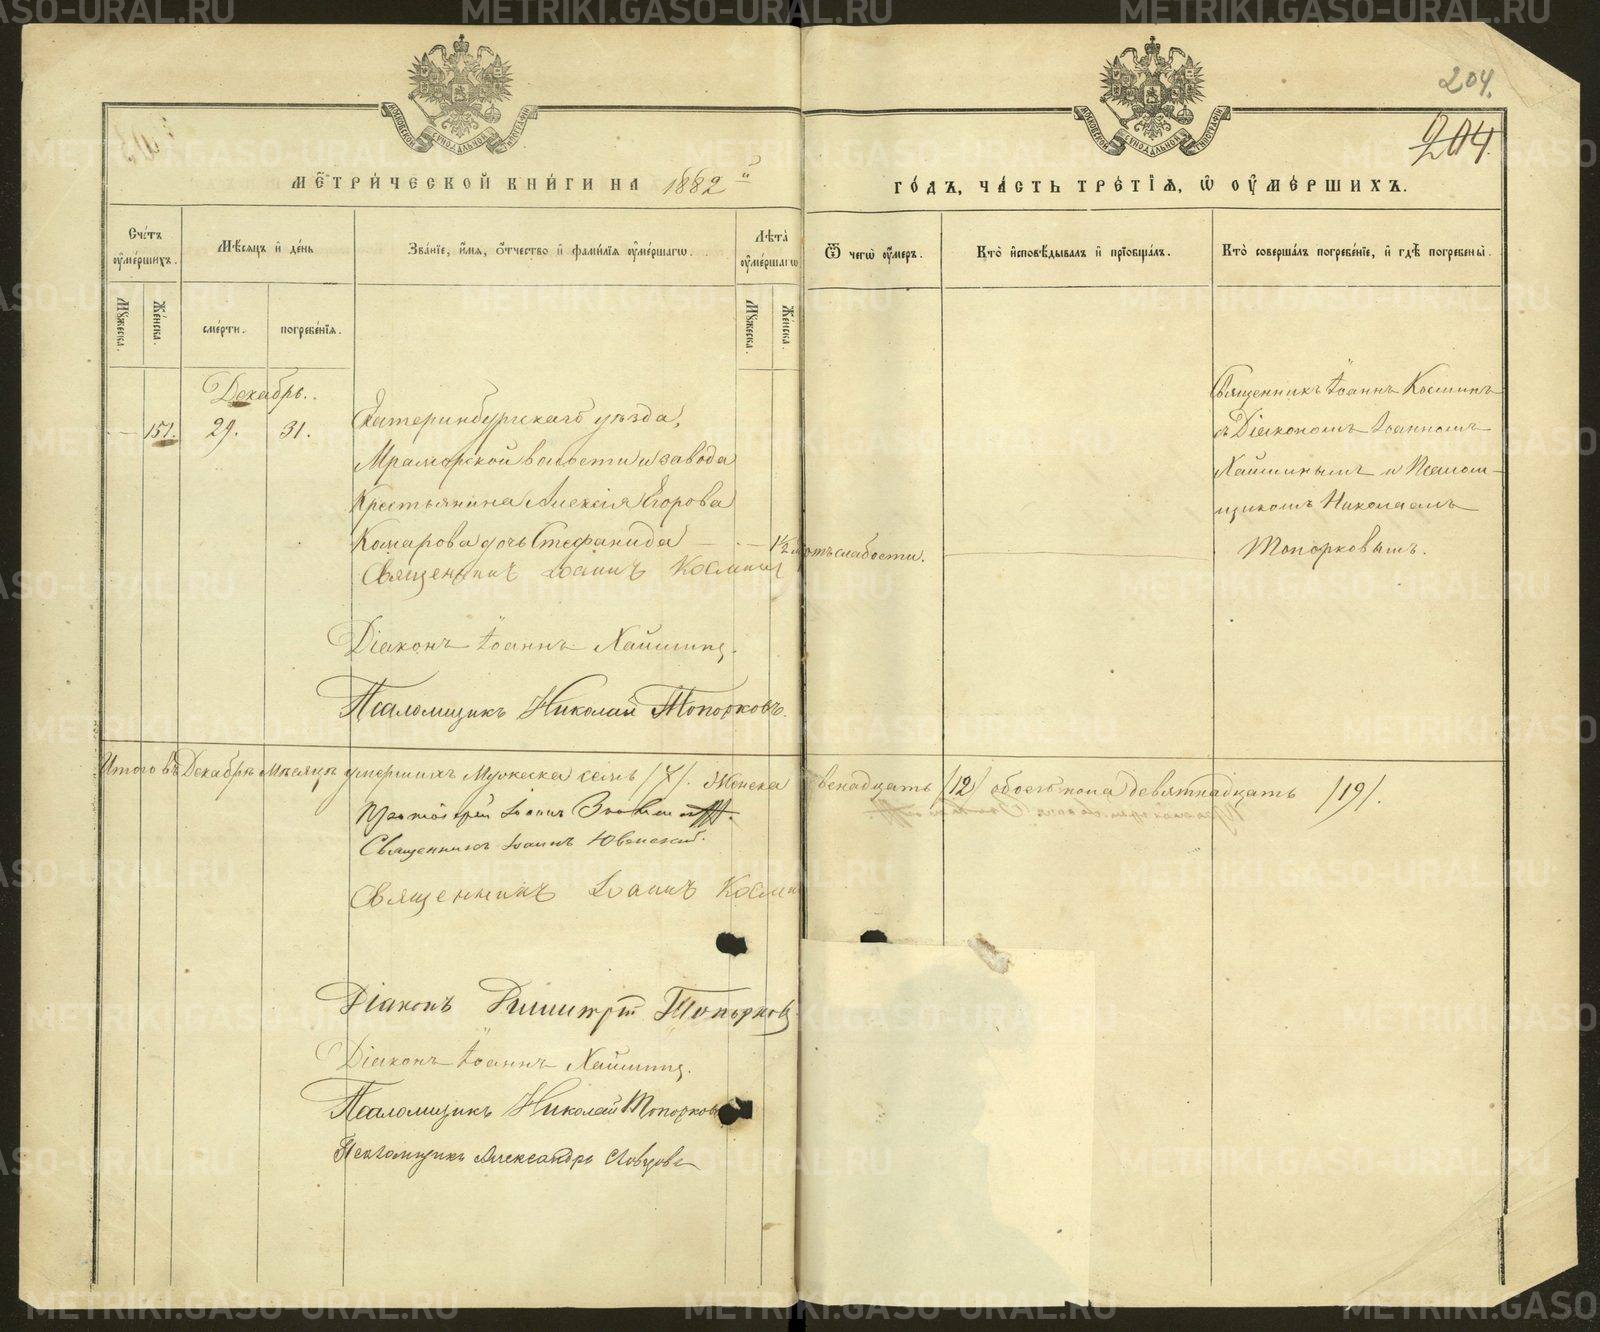 204.
204.
МОСКОВСКОЙ СУНОДАЛЬНОЙ ТИПОГРАФІИ
МОСКОВСКОЙ СУНОДАЛЬНОЙ ТИПОГРАФІИ
МЕТРИ́ЧЕСКОЙ КНИ́ГИ НА 1882й
ГО́ДЪ, ЧА́СТЬ ТРЕ́ТІѦ, Ѿ ОУМЕ́РШИХЪ.
Сче́тъ оумершихъ.
Мѣсяцъ и де́нь
Зва́ніе, и́мя, о́тчество и фами́лія оуме́ршагѡ.
Лѣта̀ оуме́ршагѡ
Ѿ чегѡ̀ оу́меръ.
Кто̀ исповѣ́дывалъ и пріобща́лъ.
Кто̀ соверша́лъ погребе́ніе, и гдѣ̀ погребены̀.
Мꙋжеска.
Же́нска.
сме́рти.
погребе́нїя.
Мꙋжеска.
Же́нска.
Декабрь.
151.
29.
31.
Екатеринбургскаго уѣзда,
Мраморской волости и завода
Крестьянина Алексія Егорова
Комарова дочь Стефанида
1½ м
отъ слабости.
Священникъ Іоаннъ Косминъ
съ Діакономъ Іоанномъ
Хайминымъ и Псалом-
щикомъ Николаемъ
Топорковымъ.
Священникъ Іоаннъ Косминъ
Діаконъ Іоаннъ Хайминъ.
Псаломщикъ Николай Топорковъ.
Итого въ Декабрѣ мѣсяцѣ умершихъ Мужеска семь /7/. Женска двенадцать /12/ обоего пола девятнадцать /19/.
Протоіерей Іоаннъ
Священникъ Іоаннъ
Священникъ Іоаннъ Косминъ
Діаконъ Димитрій Топорковъ
Діаконъ Іоаннъ Хайминъ.
Псаломщикъ Николай Топорковъ
Псаломщикъ Александръ Словцовъ
METRIKI.GASO-URAL.RU